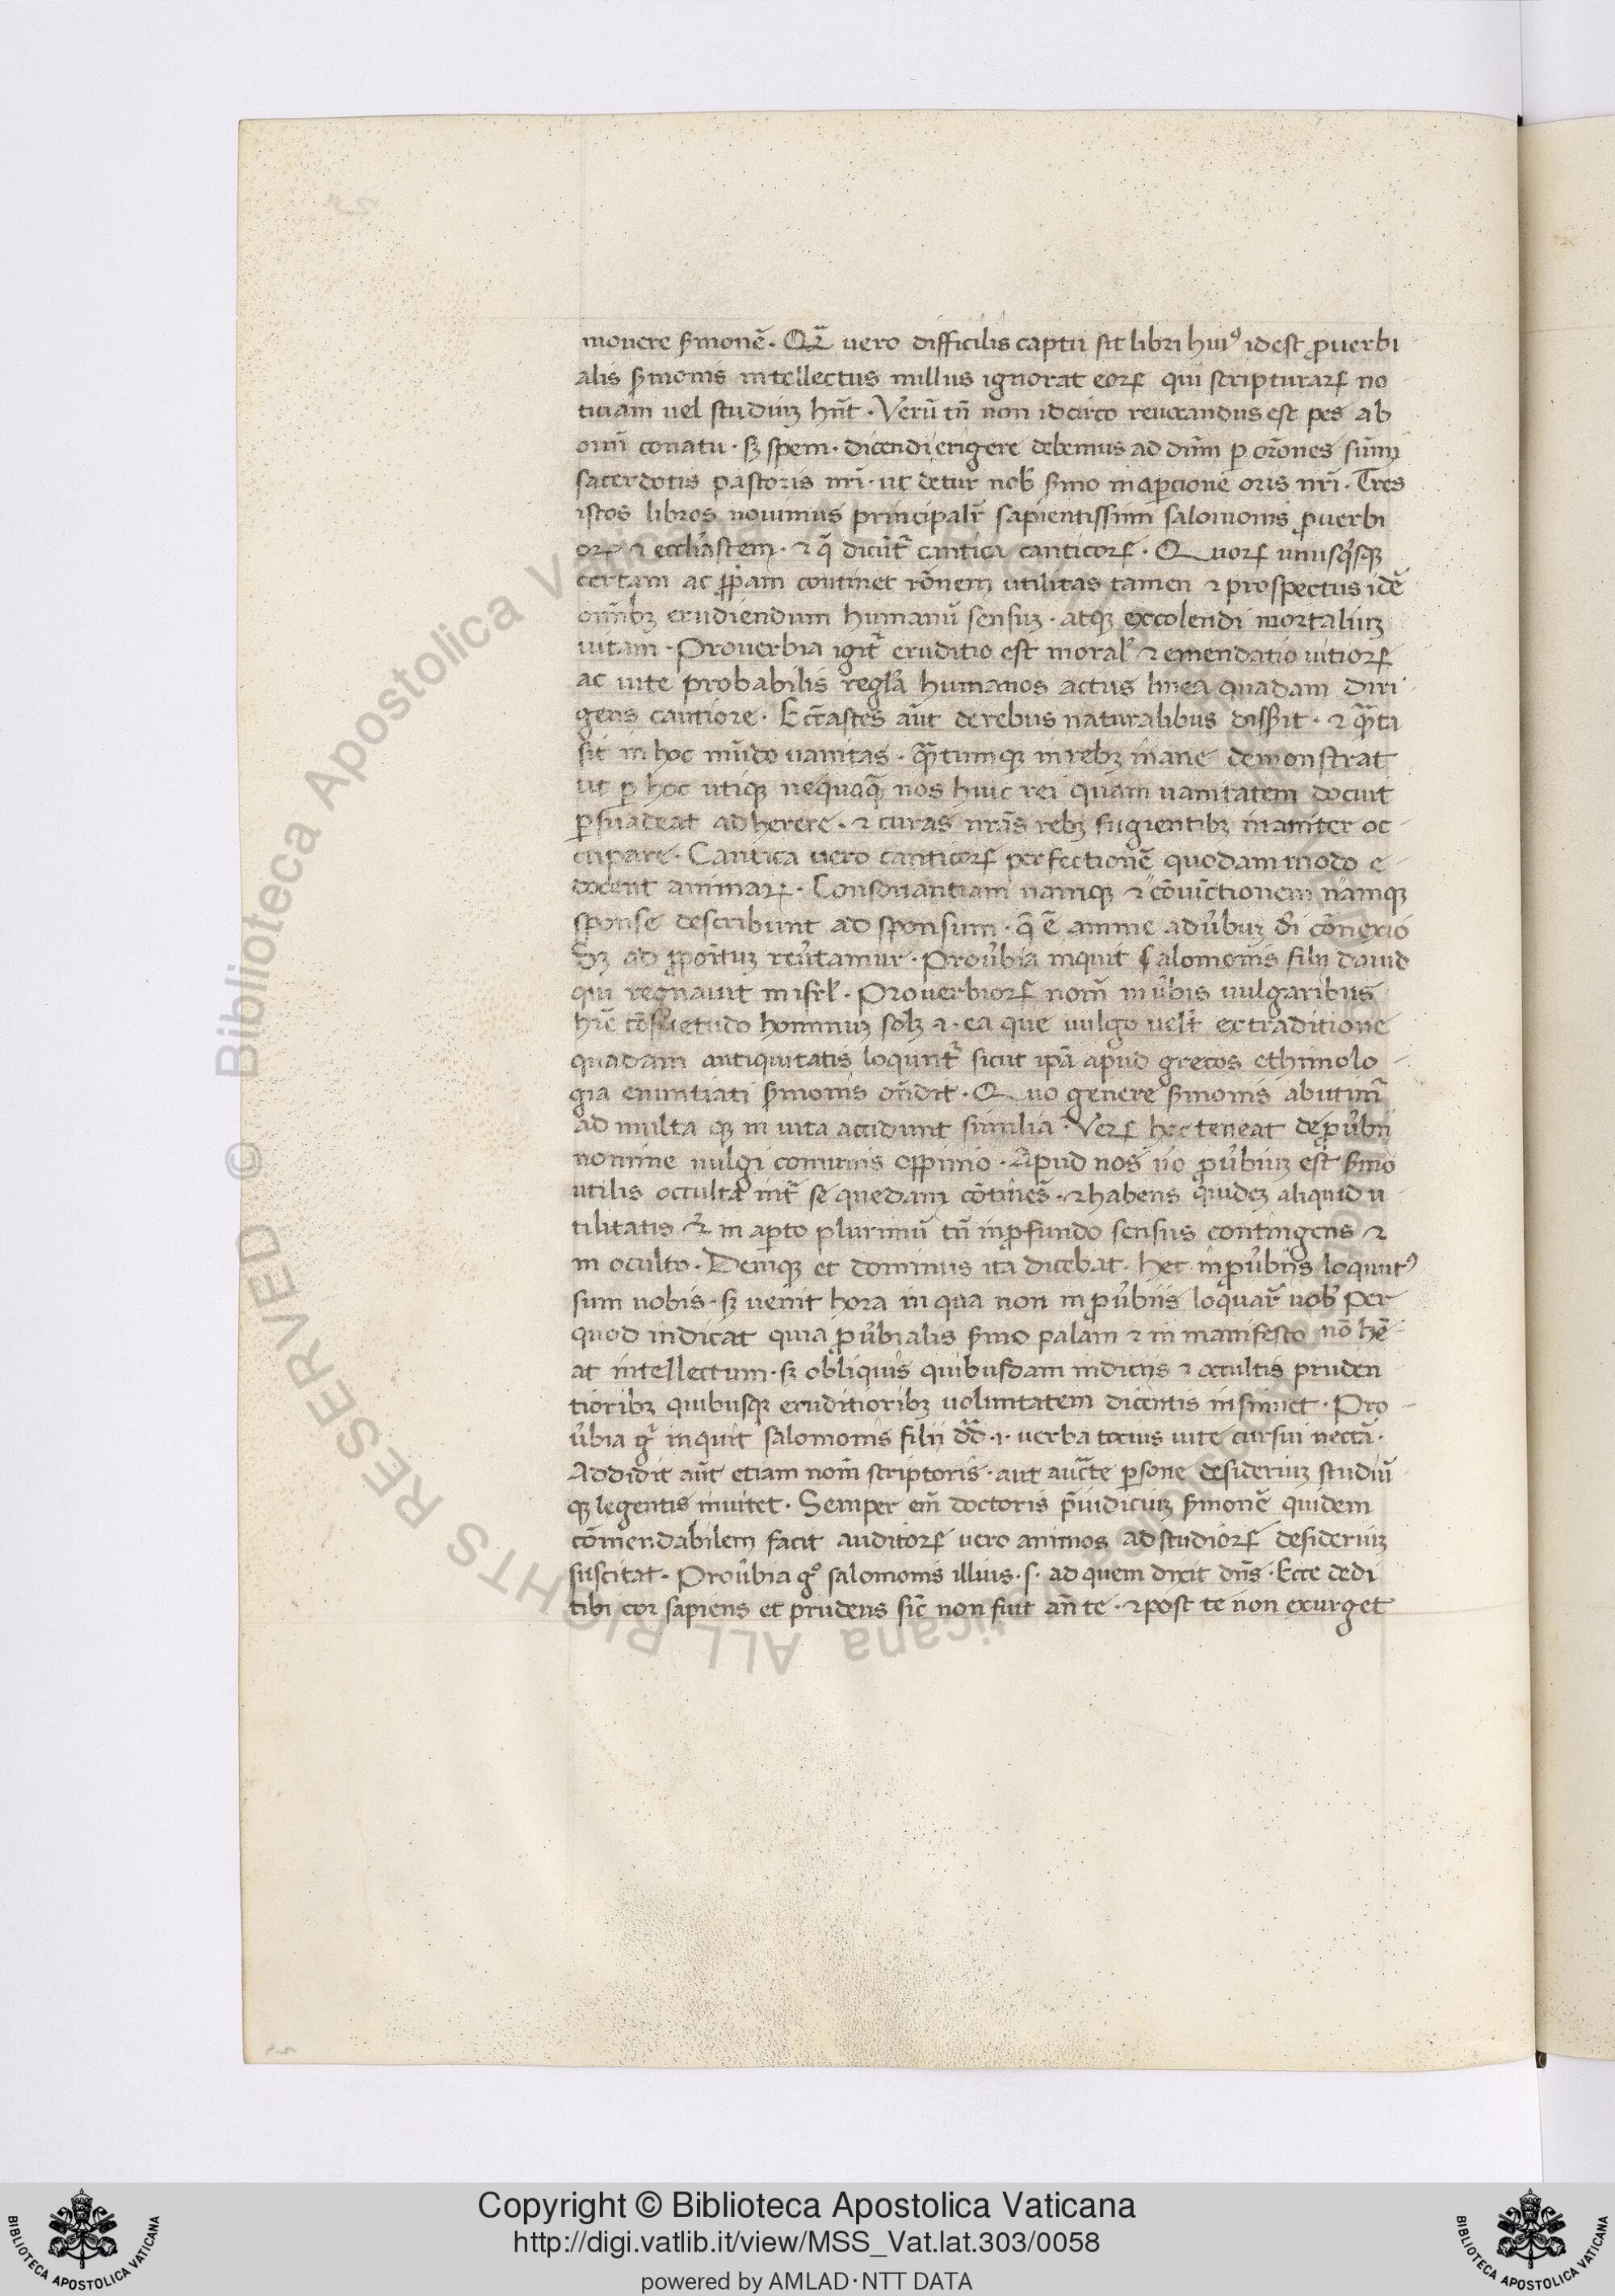 movere s̃monẽ. Qm̃ vero difficilis captu sit libri huiꝰ idest ꝓverbi
alis s̃monis intellectus nullus ignorat eoꝝ qui scripturaꝝ no
ticiam vel studiuꝫ hñt. Verũ tñ non idcirco revocandus est pes ab
omi conatu. sꝫ spem. dicendi erigere debemus ad dñm p orõnes sũmi
sacerdotis pastoris nri. ut detur nob s̃mo in apcione oris nri. Tres
istos libros novimus principalr̃ sapientissimi salomonis ꝓverbi
oꝝ ⁊ ecclĩastem. ⁊ q̃ dicũt᷑ cantica canticoꝝ. Quoꝝ unusqͥsqꝫ
certam ac ꝓp̃am continet rõnem utilitas tamen ⁊ prospectus idẽ
om̃ibꝫ erudiendum humanũ sensuꝫ. atqꝫ excolendi mortaliuꝫ
vitam. Proverbia igit᷑ eruditio est moral̃ ⁊ emendatio vitioꝝ
ac vite probabilis regl̃a humanos actus linea quadam diri
gens cautiore. Eccĩastes aũt de rebus naturalibus disserit. ⁊ qͣ̃ta
sit in hoc mũdo vanitas. qͣ̃tumqꝫ in rebꝫ inane demonstrat
ut ꝑ hoc utiqꝫ nequaqͣ̃ nos huic rei quam vanitatem docuit
ꝑsuadeat adherere. ⁊ curas nrãs rebꝫ fugientibꝫ inaniter oc
cupare. Cantica vero canticoꝝ perfectionẽ quodam modo e
docent animaꝝ. Consonantiam namqꝫ ⁊ cõiunctionem namqꝫ
sponse describunt ad sponsum. q̃ ẽ anime ad ũbuꝫ di cõnexio
Sꝫ ad ꝓpoitũ reṽtamur. Proũbia inquit Salomonis filii david
qui regnavit in isrl̃. Proverbioꝝ nom̃ in ũbis vulgaribus
hr̃e cõsuetudo hominuꝫ solꝫ .i. ea que vulgo velt̃ ex traditione
quadam antiquitatis loqunt᷑ sicut ipã apud grecos ethimolo
gia enuntiati s̃monis oñdit. Quo genere s̃monis abutim᷑
ad multa qꝫ in vita accidunt similia. Veꝝ hec teneat de ꝓũbii
nomine vulgi comunis oppinio. Apud nos ṽo ꝓũbiuꝫ est s̃mo
utilis occulta int᷑ se quedam cõtinẽs. ⁊ habens quideꝫ aliquid u
tilitatis ⁊ in aꝑto plurimũ tñ in ꝓfundo sensus contingens ⁊
in oculto. Deniqꝫ et dominus ita dicebat. hec in ꝓũbiis loqutꝰ
sum vobis. sꝫ venit hora in qua non in ꝓũbiis loquar᷑ vob per
quod indicat quia ꝓũbialis s̃mo palam ⁊ in manifesto nõ hẽ
at intellectum. sꝫ obliquis quibusdam indiciis ⁊ occultis pruden
tioribꝫ quibusqꝫ eruditioribꝫ voluntatem dicentis insinuet. Pro
ũbia gͦ inquit salomonis filii dd̃ .i. verba totius vite cursui necc̃ã.
Addidit aũt etiam nom̃ scriptoris. aut auct̃e ꝑsone desideriuꝫ studiũ
qꝫ legentis invitet. Semper em̃ doctoris p̃iudiciuꝫ s̃monẽ quidem
cõmendabilem facit auditoꝝ vero animos ad studioꝝ desideriuꝫ
suscitat. Proũbia gͦ salomonis illius .s. ad quem dixit dñs. Ecce dedi
tibi cor sapiens et prudens sic̃ non fuit añ te. ⁊ post te non exurget
Copyright © Biblioteca Apostolica Vaticana
http://digi.vatlib.it/view/MSS_Vat.lat.303/0058
powered by AMLAD·NTT DATA
BIBLIOTECA APOSTOLICA VATICANA
BIBLIOTECA APOSTOLICA VATICANA
© Biblioteca Apostolica Vaticana ALL RIGHTS RESERVED